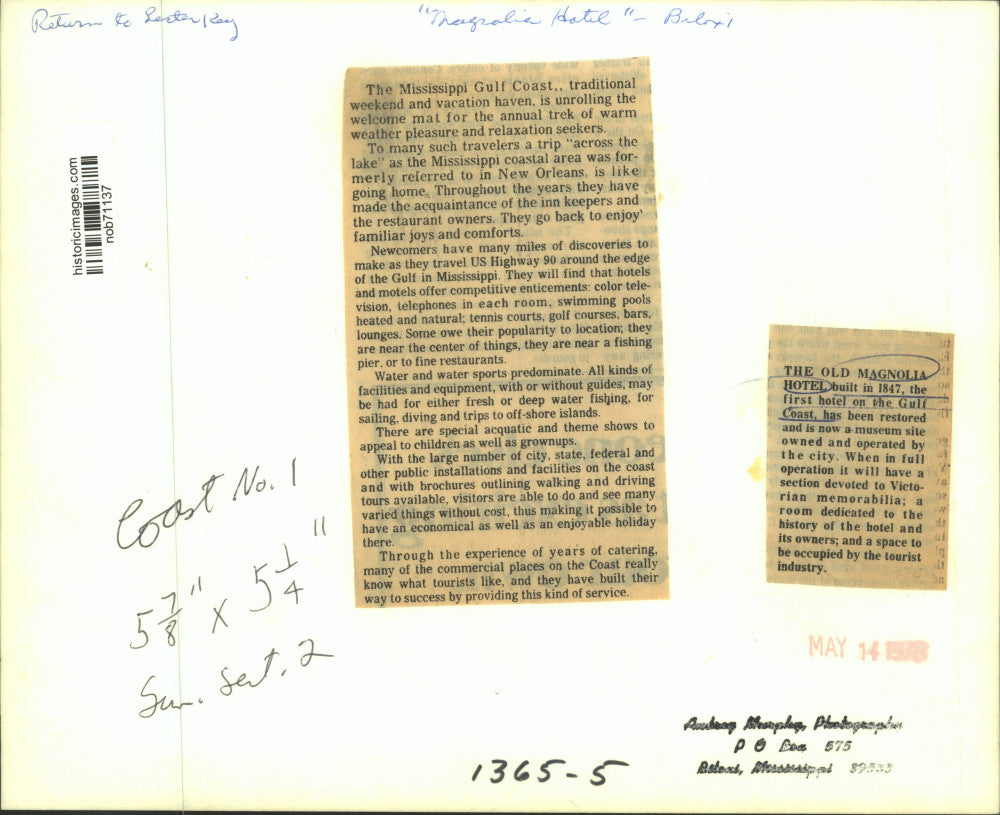 Return to Lester Kay
"Magnolia Hotel" - Biloxi
historicimages.com
nob71137
The Mississippi Gulf Coast,, traditional
weekend and vacation haven, is unrolling the
welcome mat for the annual trek of warm
weather pleasure and relaxation seekers.
To many such travelers a trip "across the
lake" as the Mississippi coastal area was for-
merly referred to in New Orleans, is like
going home. Throughout the years they have
made the acquaintance of the inn keepers and
the restaurant owners. They go back to enjoy
familiar joys and comforts.
Newcomers have many miles of discoveries to
make as they travel US Highway 90 around the edge
of the Gulf in Mississippi. They will find that hotels
and motels offer competitive enticements: color tele-
vision, telephones in each room, swimming pools
heated and natural; tennis courts, golf courses, bars,
lounges. Some owe their popularity to location; they
are near the center of things, they are near a fishing
pier, or to fine restaurants.
Water and water sports predominate. All kinds of
facilities and equipment, with or without guides, may
be had for either fresh or deep water fishing, for
sailing, diving and trips to off-shore islands.
There are special acquatic and theme shows to
appeal to children as well as grownups.
With the large number of city, state, federal and
other public installations and facilities on the coast
and with brochures outlining walking and driving
tours available, visitors are able to do and see many
varied things without cost, thus making it possible to
have an economical as well as an enjoyable holiday
there.
Through the experience of years of catering,
many of the commercial places on the Coast really
know what tourists like, and they have built their
way to success by providing this kind of service.
THE OLD MAGNOLIA
HOTEL built in 1847, the
first hotel on the Gulf
Coast, has been restored
and is now a museum site
owned and operated by
the city. When in full
operation it will have a
section devoted to Victo-
rian memorabilia; a
room dedicated to the
history of the hotel and
its owners; and a space to
be occupied by the tourist
industry.
Coast No. 1
5 7/8" x 5 1/4"
Sun. Sect. 2
MAY 14
Audrey Murphy, Photographer
P O Box 575
Biloxi, Mississippi 39533
1365-5